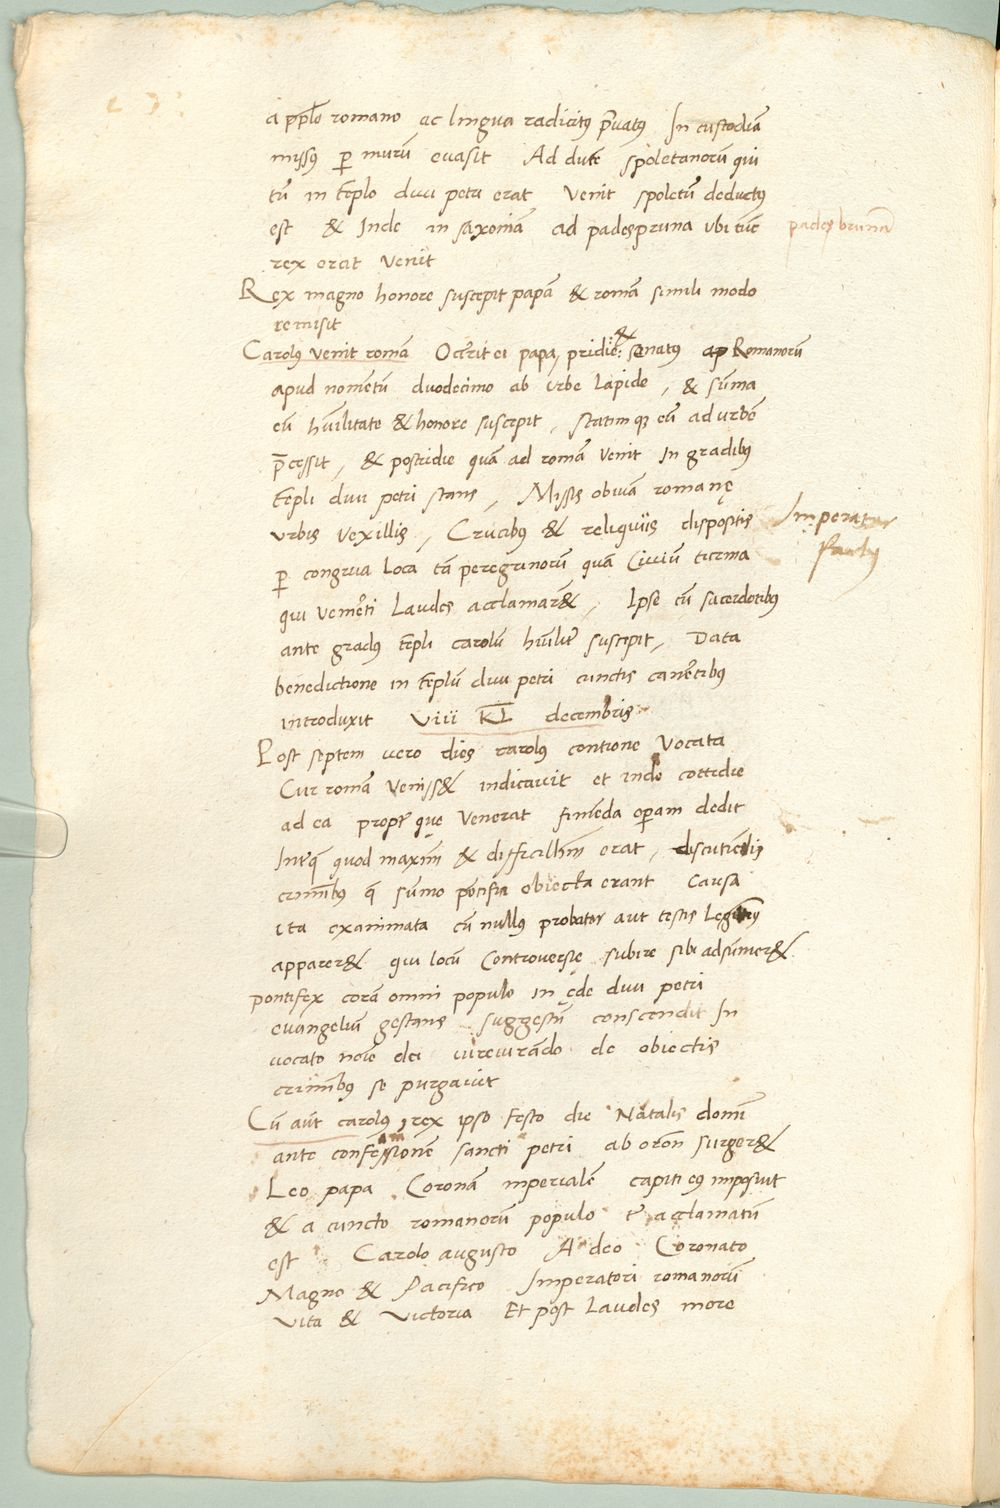 a pplo romano ac lingua radicitus p̄uatus In custodiā
missus p murū evasit Ad ducē spoletanorū qui
tū in tēplo divi petri erat venit spoletū deductus
est & Inde in saxoniā ad padespruna ubi tūc
padesbrunā
rex erat venit
Rex magno honore suscepit papā & romā simili modo
remisit
Carolus venit romā Occ̄rit ei papa, pridie: & senatus ap Romanorū
apud nomētū duodecimo ab urbe lapide, & sūma
cū hūilitate & honore suscepit, statimq̨ eū ad urbē
p̄cessit, & postridie quā ad romā venit in gradibus
tēpli divi petri stans, Missis obviā romanę
urbis vexillis, Crucibus & reliquiis dispositis
Imperator
p congrua loca tā peregrinorū quā civiū turma
qui veniēti Laudes acclamar&, Ipse cū sacerdotibus
ante gradus tēpli carolū hūilit̄ suscepit, Data
benedictione in tēplū divi petri cunctis canētibus
introduxit viii K̄L decembris
Post septem vero dies carolus contione vocata
Cur romā veniss& indicavit et inde cottidie
ad ea propt̄ quę venerat finiēda operam dedit
Int̄q̨ quod maximū & difficillimū erat, discutiēdis
criminibus q̄ sūmo pōtifici obiecta erant Causa
ita examinata cū nullus probator aut testis Legittimus
apparer& qui locū Controversię subire sibi adsūmer&
pontifex corā omni populo in ęde divi petri
evangeliū gestans suggestū conscendit In
vocato noīe dei iureiurādo de obiectis
criminibus se purgavit
Cū aūt carolus rex ipso festo die Natalis domini
ante confessionem sancti petri ab orōn surger&
Leo papa Coronā imperialē capiti eius imposuit
& a cuncto romanorū populo t̄ acclamatū
est Carolo augusto A deo Coronato
Magno & Pacifico Imperatori romanorū
vita & victoria Et post Laudes more